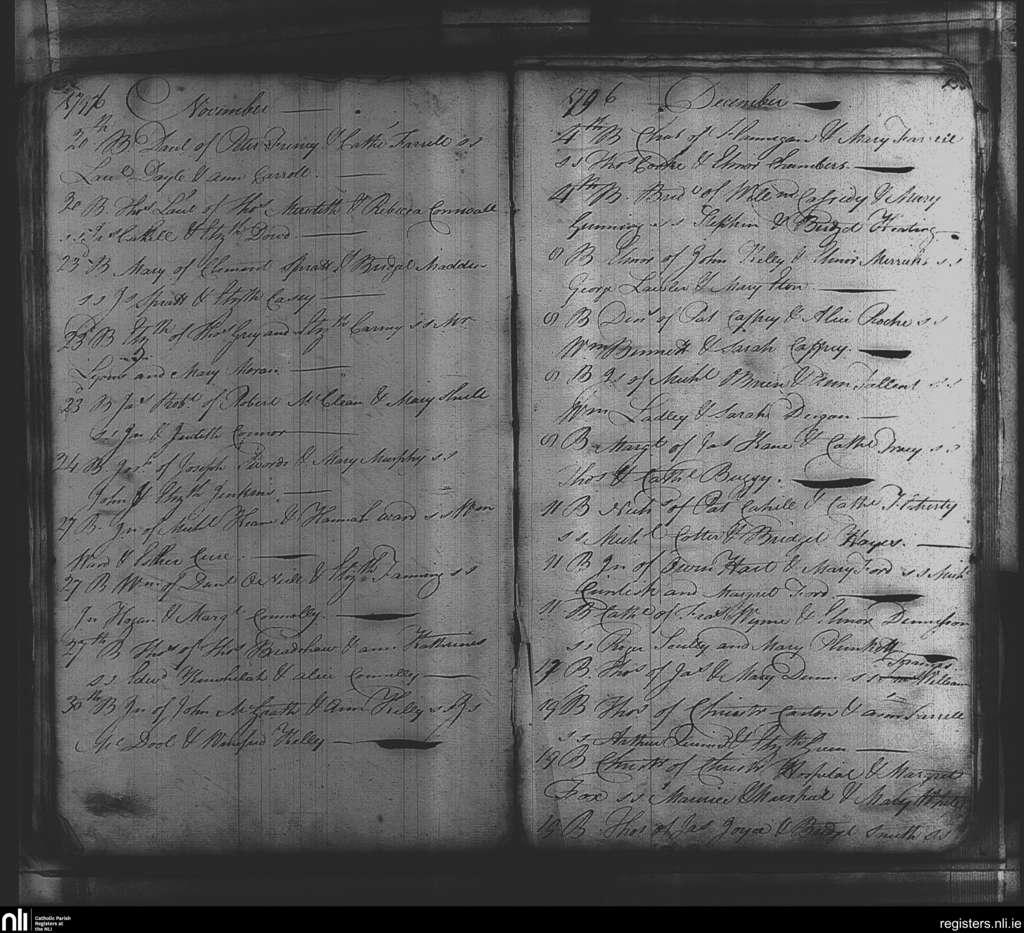 1796 November
20th B Danl of Peter Freney & Cathe Farrell ss
Laud Doyle & Ann Carroll.
20 B Thos Laul of Thos Meredith & Rebecca Connoall
ss Jas Cahill & Elyzth Dowd
23d B Mary of Clement Spratt & Bridget Madden
ss Js Spratt & Elyth Casey
23d B Elyzth of Thos Grey and Elyzth Carny ss Mr
Lyons and Mary Moran
23d B Jas Robt of Robert McClean & Mary Shiell
ss Jn & Judith Connor
24 B Josh of Joseph Swords & Mary Murphy ss
John & Elyth Jenkins
27 B. Jn of Michl Kean & Hannah Ward ss Wm
Ward & Esther
27 B Wm of Danl ONeill & Elyzth Fanning ss
Jn Hogan & Margt Connolly.
27th B Thos of Thos Bradshaw & Ann Katherines
ss Edwd & Alice Connolly
30th B Jn of John McGrath & Ann Kelly ss Js
Mc Dool & Winifred Kelly
1796 December
4th B Chas of Js Flannegan & Mary Farrell
ss Thos Cooke & Elinor Chambers
4th B. Brid of William Cassidy & Mary
Gunning ss Stephen & Bridget Keating
8 B Elinor of John Kelley & Elinor Merrick ss
George Lawler & Mary
8 B Denis of Pat Caffrey & Alice Roche ss
Wm Bennett & Sarah Caffrey.
8 B Js of Michl OBrien & Tallent ss
Wm Ladley & Sarah Deegan
8 B Margt of Jas Kane & Cathe Dracy ss
Thos & Cathe Buggy.
11 B Nichs of Pat Cahill & Cathe Flaherty
ss Michl Cotter & Bridget Hayes.
11 B Jn of Owen Hart & Mary Ford ss Michl
and Margret Ford
11 B Cathe of Fras Wynne & Elinor Dennison
ss Roger and Mary Plunkett
17 B. Thos of Jas & Mary Dunn. ss William
19 B Thos of Christr Carton & Ann Farrell
ss Arthur & Elyth Green
19 B Christr of Christr Hospital & Margret
Fox ss Maurice & Mary
19 B. Thos of Jas Joyce & Bridgt Smith ss
nli
Catholic Parish
Registers at
the NLI
registers.nli.ie